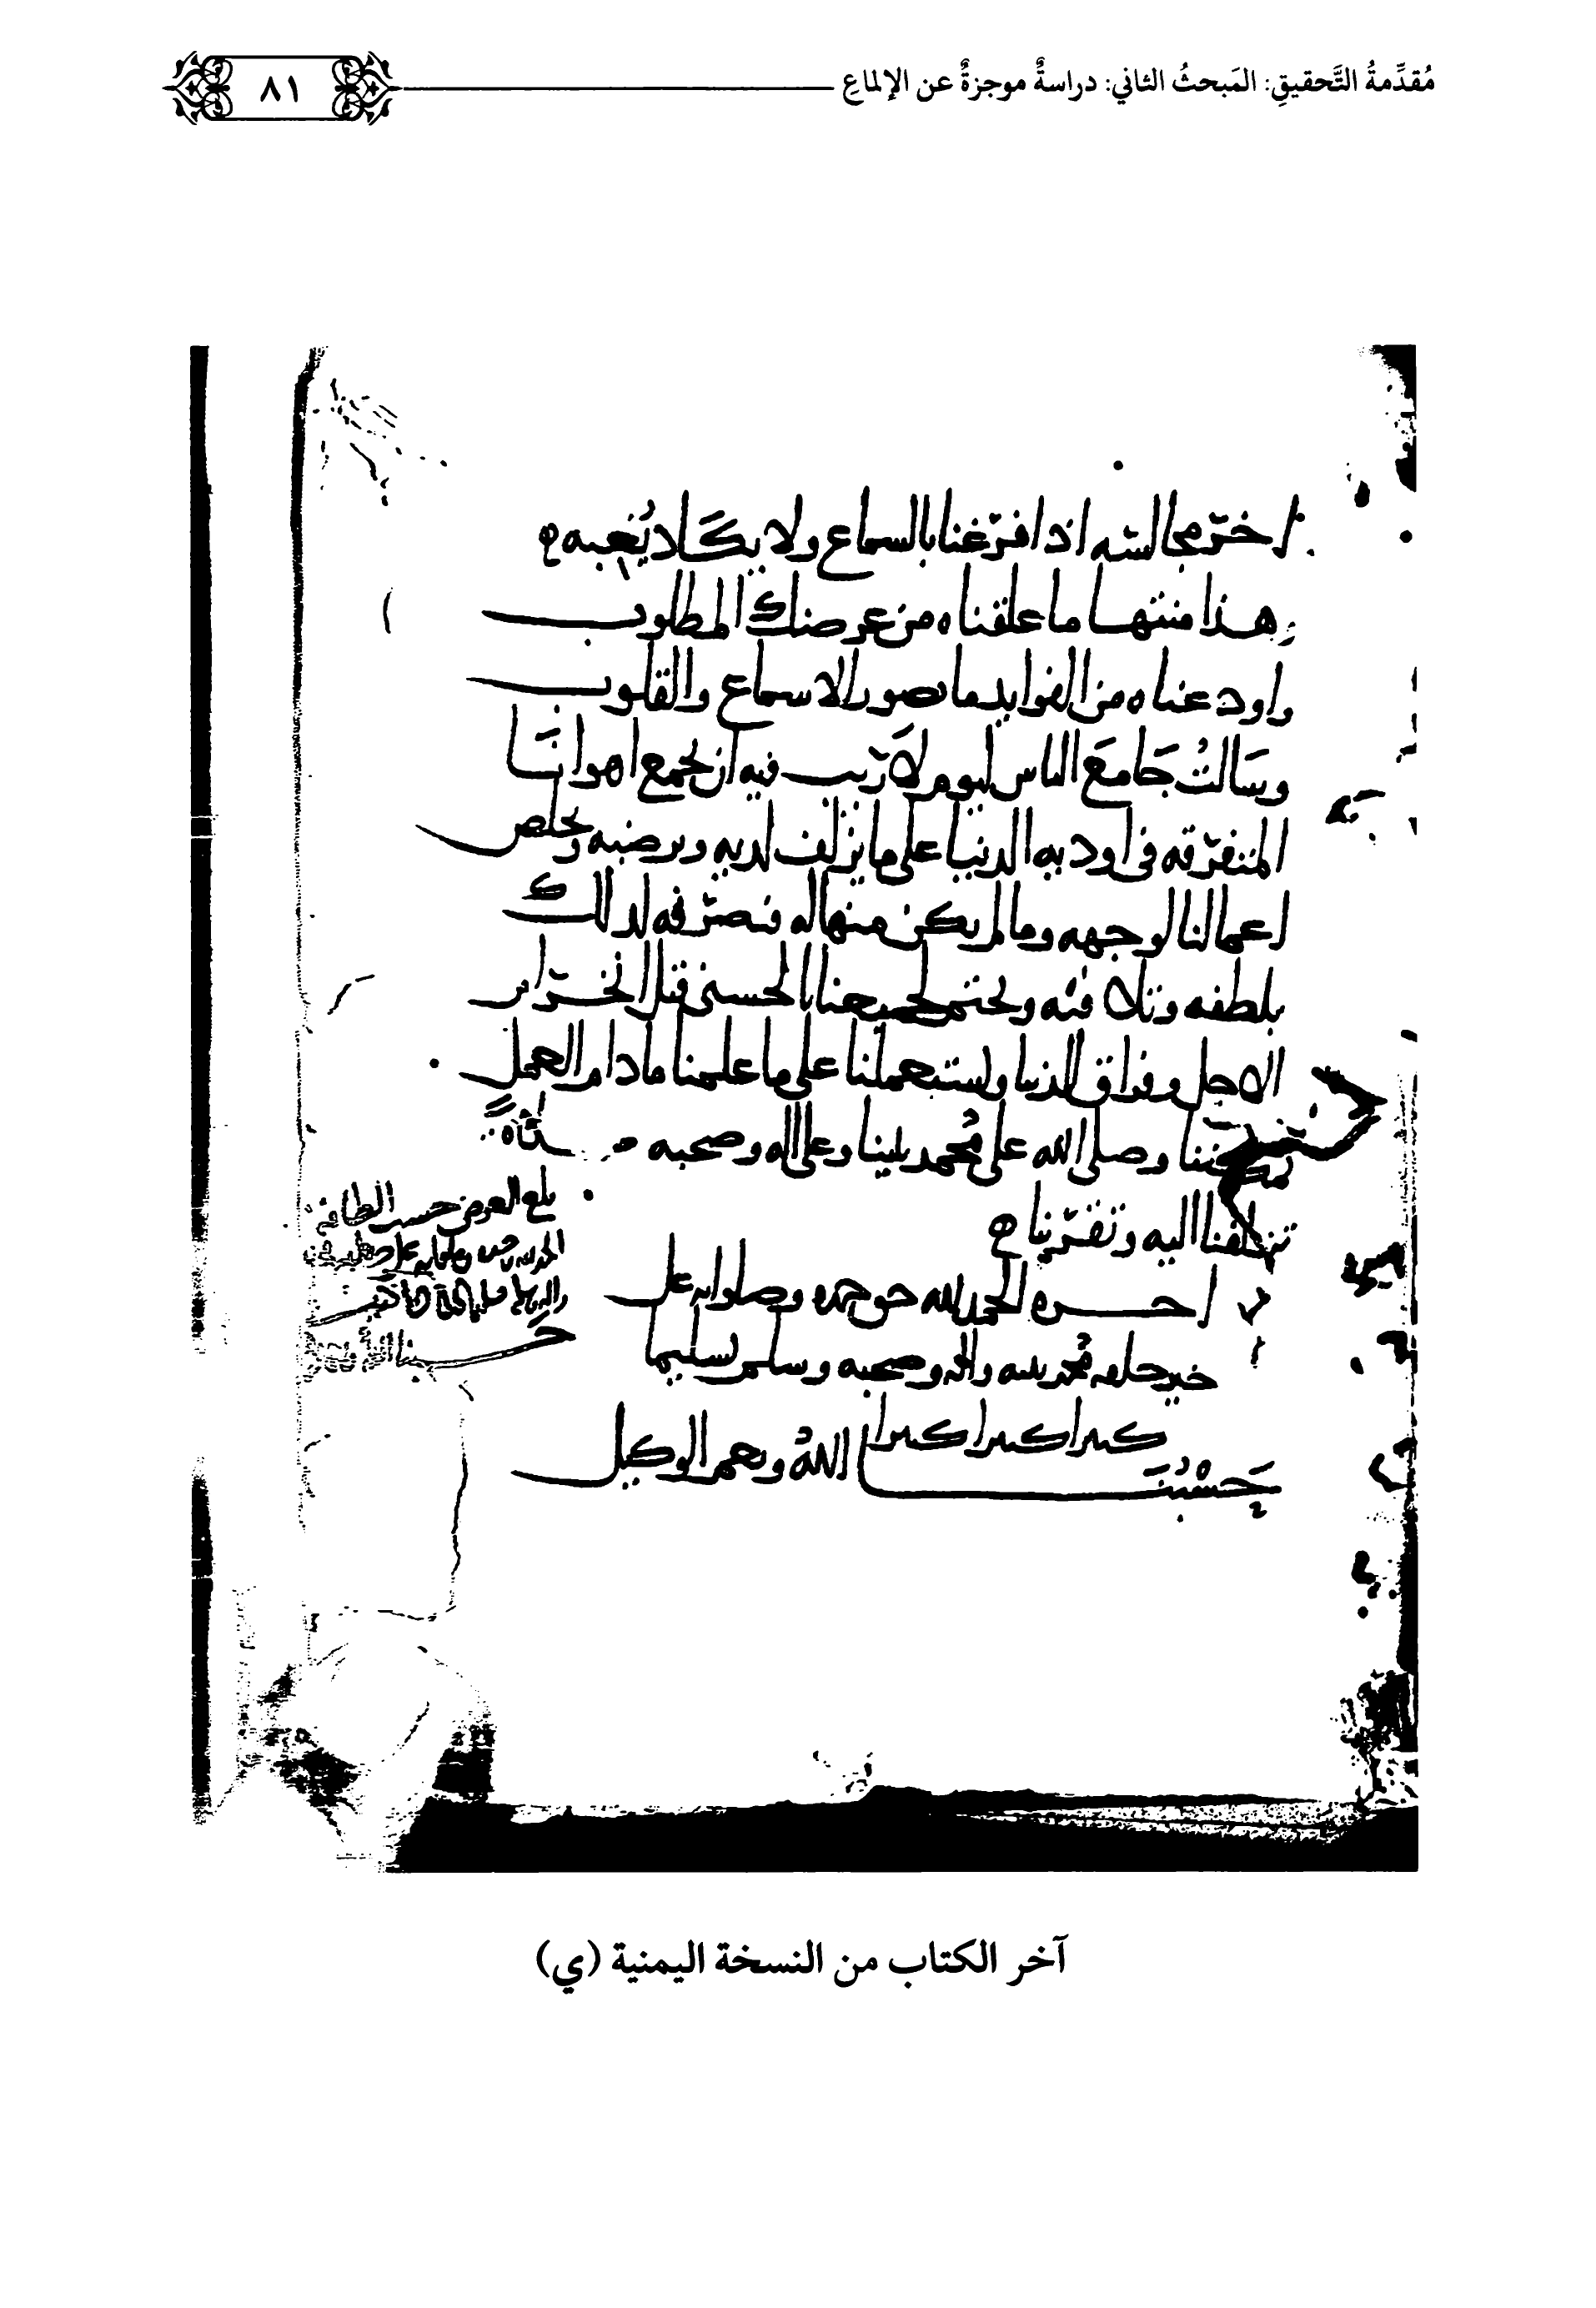 مُقدِّمةُ التَّحقيقِ: المَبحثُ الثاني: دراسةٌ موجزةٌ عن الإلماعِ
٨١
اخرّ مجالسه اذا فرّغنا بالسماع ولا يكَاد يُغبه
وهذا منتهـا ما علقناه من غرضك المطلوب
واودعناه من الفوايد ما تصور الاسماع والقلوب
وسَالتُ جَامعَ الناس ليوم لَا رَيب فيه ان يجمع اهوانَـا
المتفرّقه فى اوديه الدنيا على ما يزلف لديه ويرضيه ويخلص
اعمالنا لوجهه وما لم يكن منها له فيصرّفه لدلك
بلطفه وتلافيه ويختم لجميعنا بالحسنى قبل انخرام
الاجل وفراق الدنيا ويستعملنا على ما علمنا ما دام العمل
يمكننا وصلى الله على مُحمد نبينا وعلى اله وصحبه
تزلفنا اليه وتقرّبنا
اخـره الحمد لله حق حمده وصلواته على
خير خلقه مُحمد نبيه واله وصحبه وسلم تسليما
كثيرا كثيرا كثيرا
حَسْبُنَـا اللهُ ونعم الوكيل
بلغ العرض حسب الطاقة
حَسبنا الله
آخر الكتاب من النسخة اليمنية (ي)